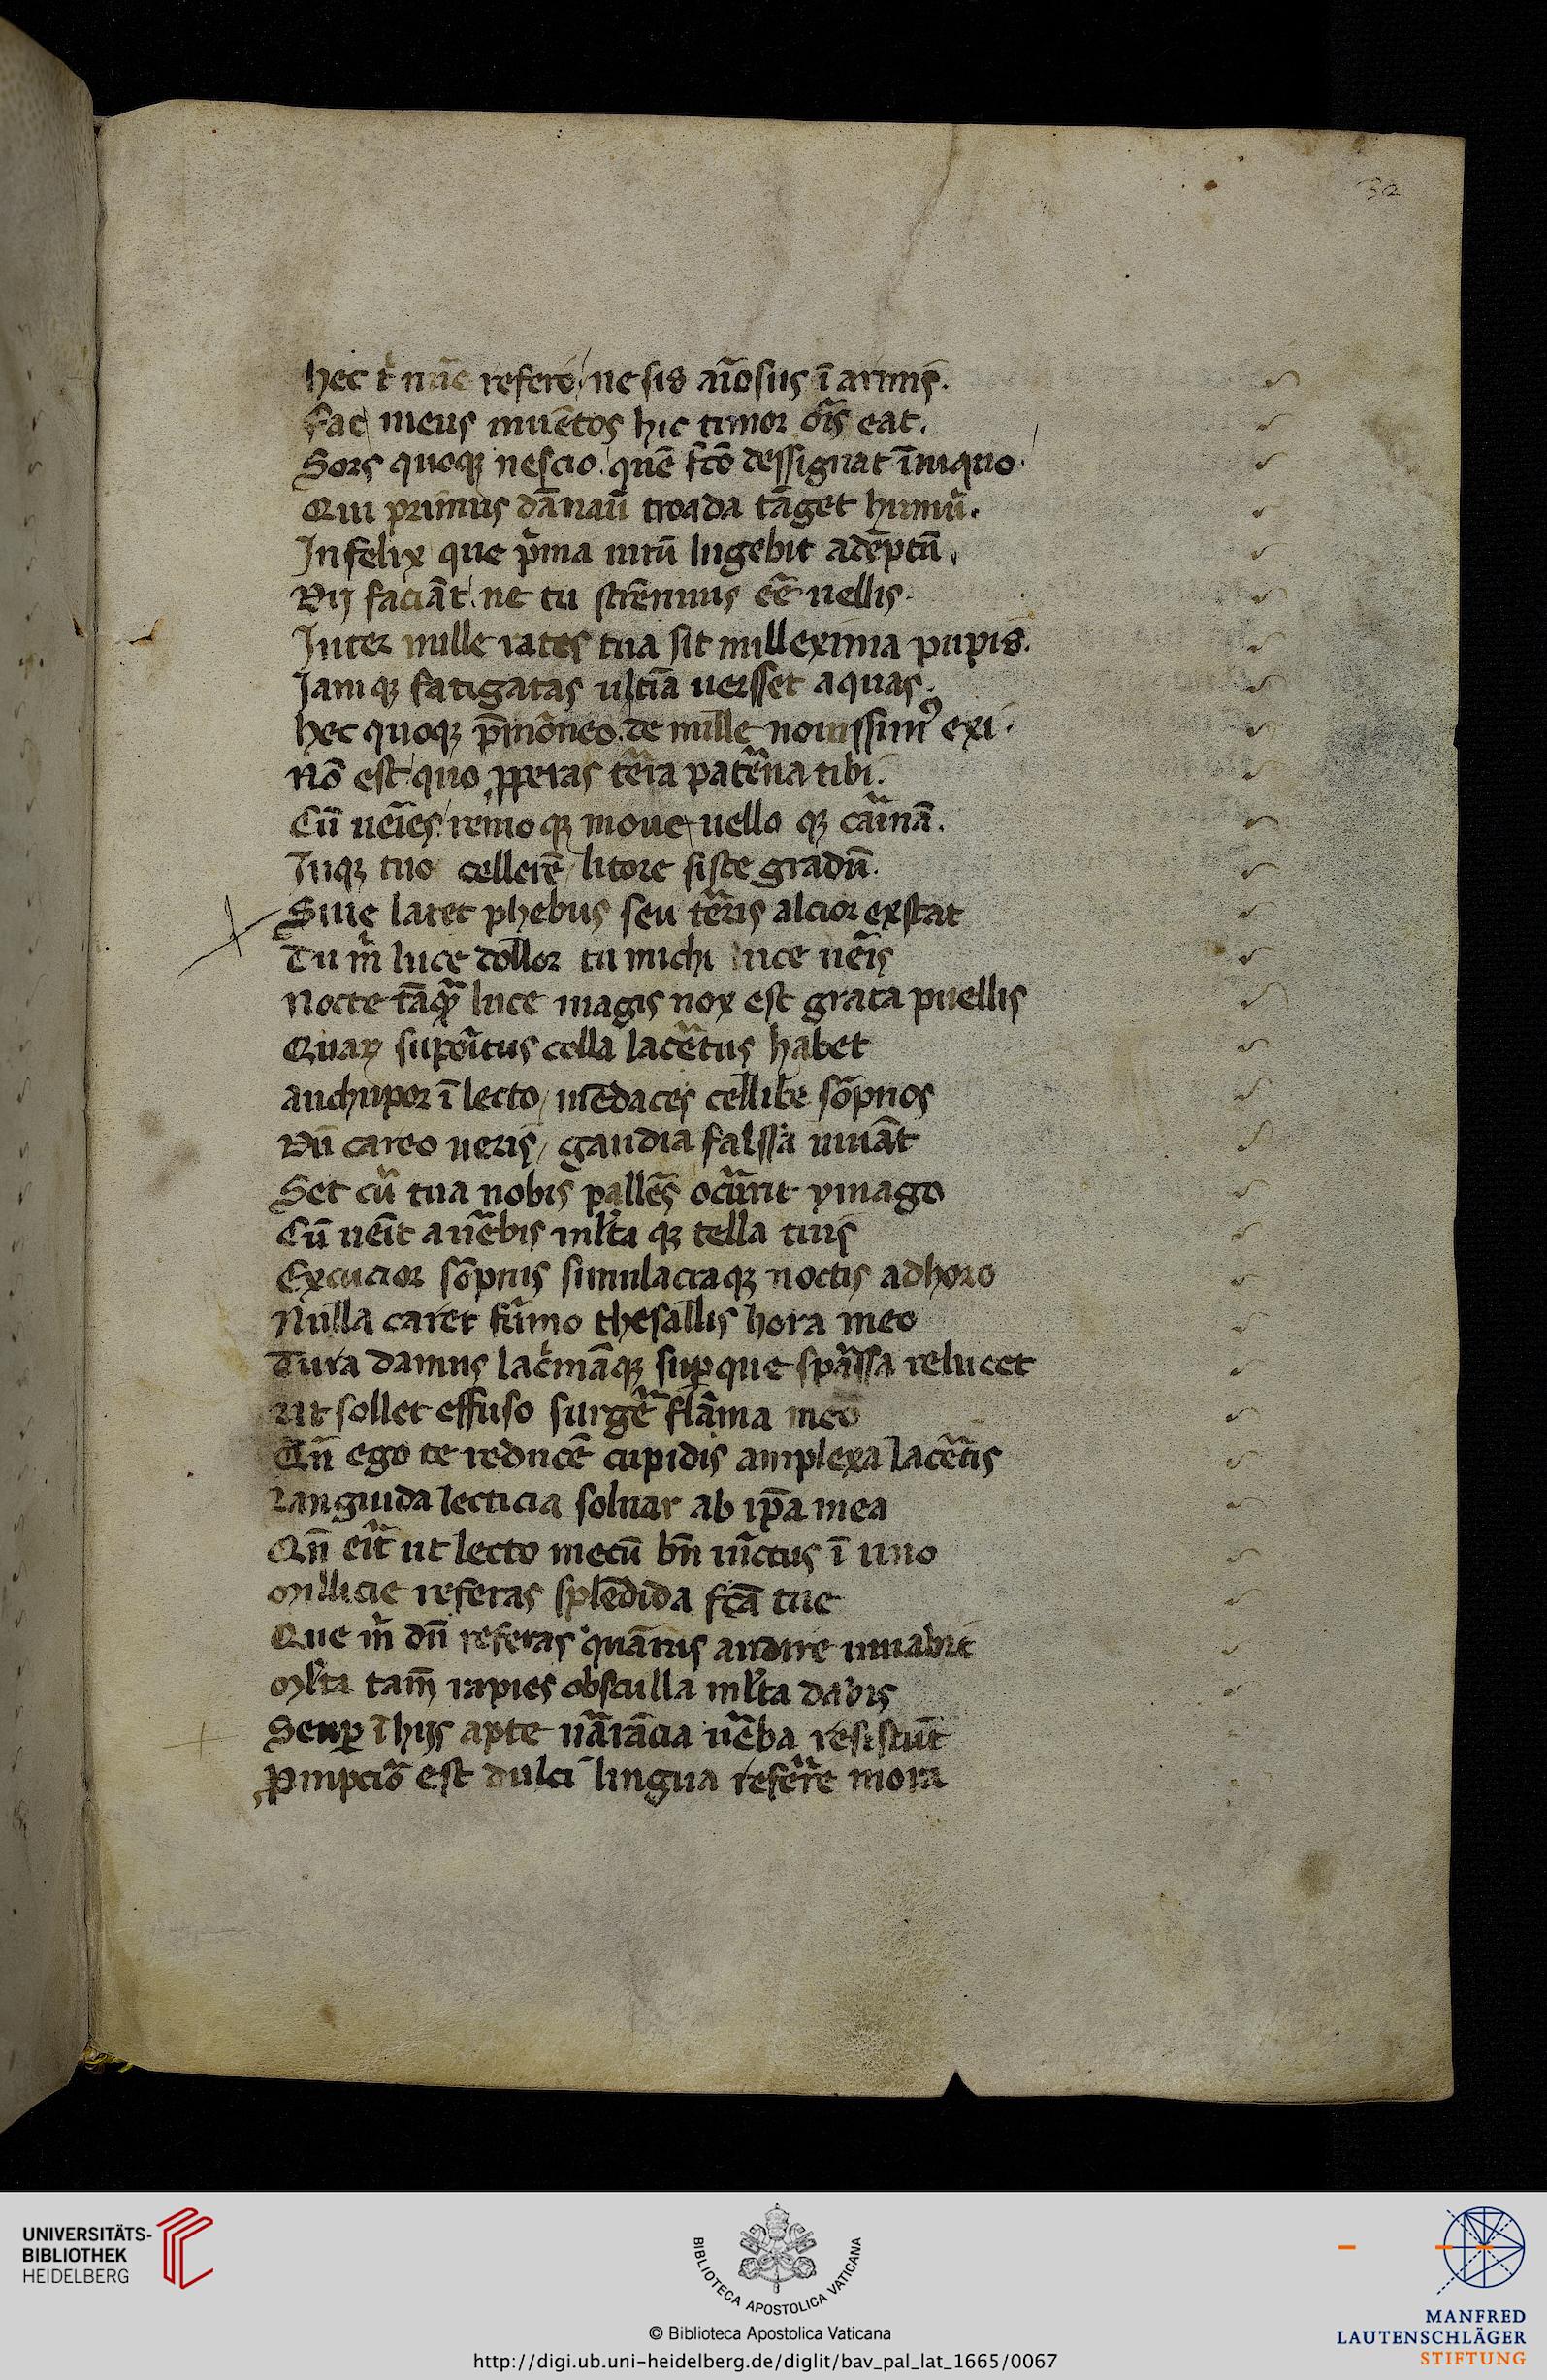 32
hec t̉ nūc refero, ne sis aīosus ī armis.
Fac meus inuētos hic timor oīs eat.
Sors quoqꝫ nescio quē fc̄o dessignat īniquo.
Qui primus dānaū troada tāget humū.
Infelix que pͥma uirū lugebit adēptū.
Dij faciāt ne tu strēnuus eē uellis.
Inter mille rates tua sit millexima pupis.
Iamqꝫ fatigatas ultīa uersset aquas.
hec quoqꝫ p̄mōneo. de mille nouissimꝰ exi.
Nō est quo ꝓperas tēra patēna tibi.
Cū ueīes remoqꝫ moue uelloqꝫ carinā.
Inqꝫ tuo cellerē litore siste gradū.
Siue latet phebus seu tēris alcior exstat
Tu m̉ luce dollor tu michi luce ueīs
Nocte tāqꝫ luce magis nox est grata puellis
Quaꝝ supoītus colla lacētus habet
auchupor ī lecto mēdaces cellibe sōpnos
Dū careo ueris, gaudia falssa iuuāt
Set cū tua nobis pallēs ocurrit ymago
Cū ueīt a uēbis ml̉taqꝫ tella tuis
Excucior sōpnis simulacraqꝫ noctis adhoro
Nulla caret fūmo thesallis hora meo
Tura damus lac̉māqꝫ suꝑque spāssa relucet
ut sollet effuso surgē flāma meō
Qn̄ ego te reducē cupidis amplexa lacētis
Languida lecticia soluar ab ip̄a mea
Qn̄ eīt ut lecto mecū bn̄ iūctus ī uno
Millicie referas splēdida fc̄a tue
Que m̉ dū referas quāuis audire iuuabit
Ml̉ta tam̄ rapies obsculla ml̉ta dabis
Senꝑ ī hijs apte nārācia uēba resistūt
Pmpcior est dulci lingua refērre mora
UNIVERSITÄTS-
BIBLIOTHEK
HEIDELBERG
BIBLIOTECA APOSTOLICA VATICANA
© Biblioteca Apostolica Vaticana
http://digi.ub.uni-heidelberg.de/diglit/bav_pal_lat_1665/0067
MANFRED
LAUTENSCHLÄGER
STIFTUNG